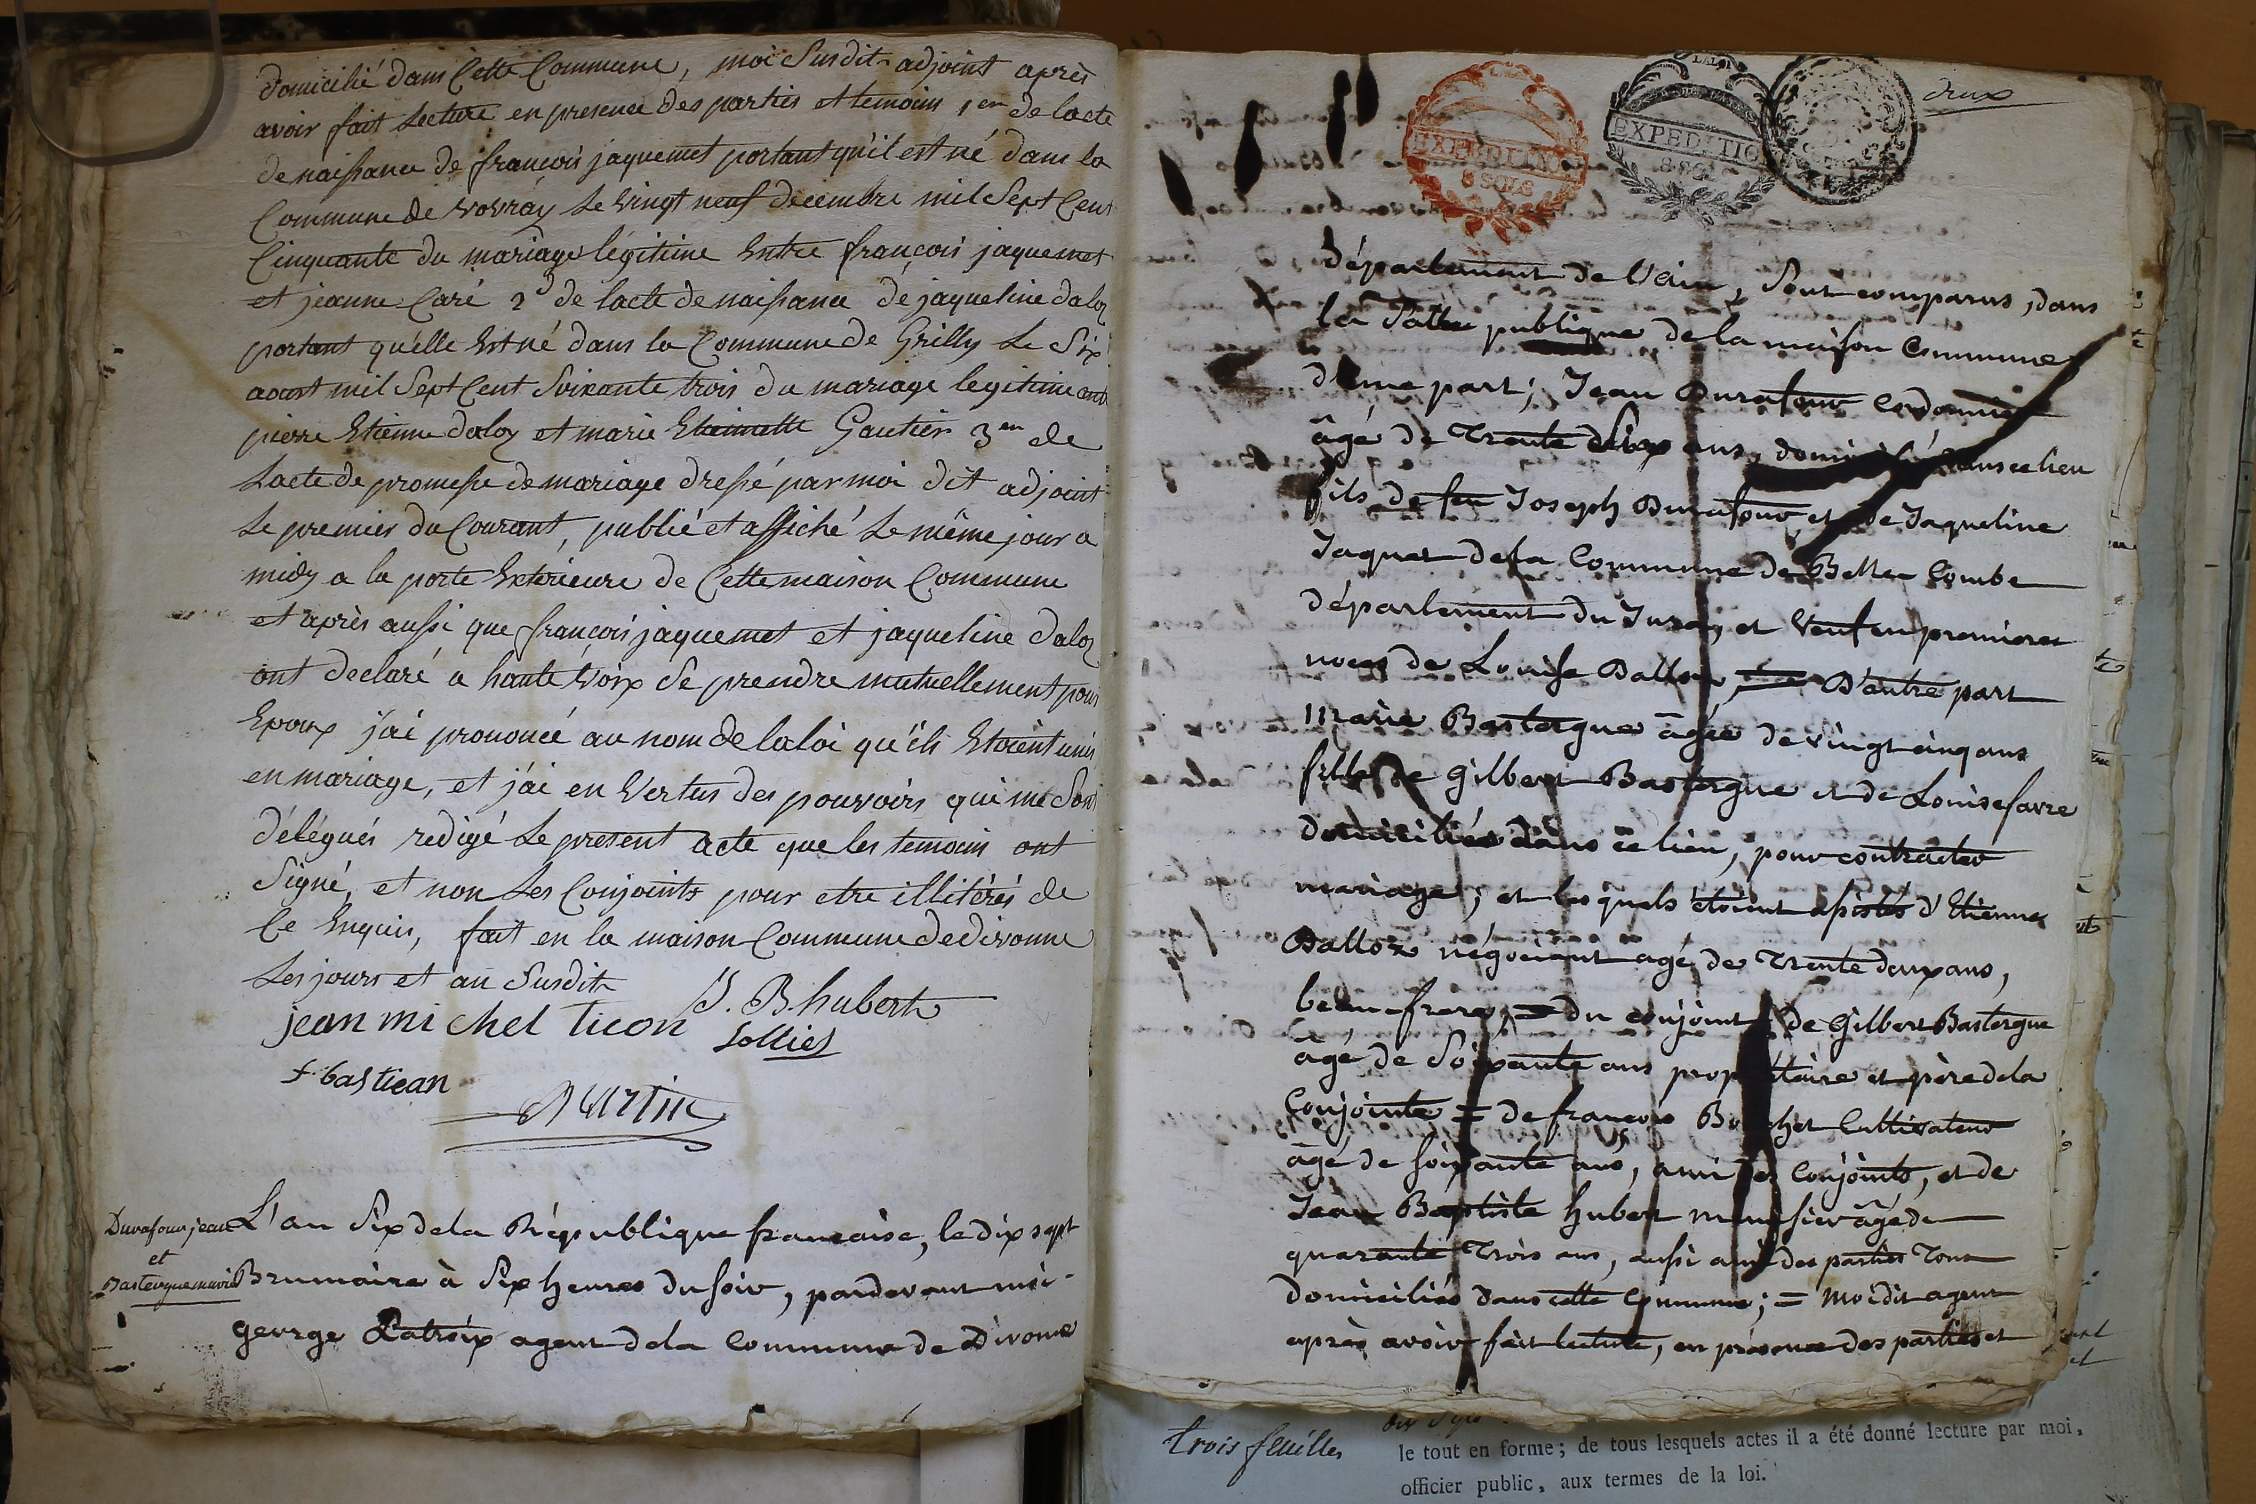 domicilié dans Cette Commune, moi Susdit adjoint après
avoir fait Lecture en presence des parties et temoins 1er de lacte
de naissance de françois jaquemet portant qu'il est né dans la
Commune de vovray Le vingt neuf decembre mil Sept Cent
Cinquante du mariage légitime Entre françois jaquemet
et jeanne Caré 2d de lacte de naissance de jaqueline daloz
portant qu'elle Est né dans la Commune de Grilly Le Six
aoust mil Sept Cent Soixante trois du mariage legitime entre
pierre Etienne daloz et marie Etiennette Gautier 3en de
Lacte de promesse de mariage dressé par moi dit adjoint
Le premier du Courant, publié et affiché Le même jour a
midy a la porte Exterieure de Cette maison Commune
et après aussi que françois jaquemet et jaqueline daloz
ont declaré a haute voix Se prendre mutuellement pour
Epoux j'ai prononcé au nom de la loi qu'ils Etoient unis
en mariage, et j'ai en Vertus des pouvoirs qui me Sont
délégués redigé Le present acte que les temoins ont
Signé, et non Les Conjoints pour etre illitérés de
Ce Enquis, fait en la maison Commune de divonne
Les jours et an Susdit
J. B. hubert
jean michel ticon
Sollier
f bastiean
Martin
Durafour jean
et
Bastergue marie
L'an Six de la République francaise, le dix sept
Brumaire à Six heures du soir, pardevant moi
george Latroix agent de la Commune de Divonne
LA LOI
EXPEDITION
8 SOLS
EXPEDITION
8 SOLS
deux
département de l'ain, Sont comparus, dans
la Salle publique de la maison Commune
d'une part; Jean Durafour Cordonnier
âgé de Trente Six ans, domicilié dans ce lieu
fils de feu Joseph Durafour et de Jaqueline
Jaquet de la Commune de Belle Combe
département du Jura, et Veuf en premieres
noces de Louise Dalloz, D'autre part
Marie Bastergue âgée de vingt cinq ans
fille de Gilbert Bastergue et de Louise favre
domiciliés dans ce lieu, pour contracter
mariage; et lesquels étoient assistés d'Etienne
Dalloz négociant âgé de Trente deux ans,
beau frere, = du conjoint, de Gilbert Bastergue
âgé de Soixante ans propriétaire et père de la
Conjointe = de francois Bouchet Cultivateur
âgé de soixante ans, ami des Conjoints, et de
Jean Baptiste hubert menusier âgé de
quarante Trois ans, aussi ami des parties Tous
domiciliés dans cette Commune; = Moi dit agent
après avoir fait lecture, en présence des parties et
trois feuilles
le tout en forme; de tous lesquels actes il a été donné lecture par moi,
officier public, aux termes de la loi.